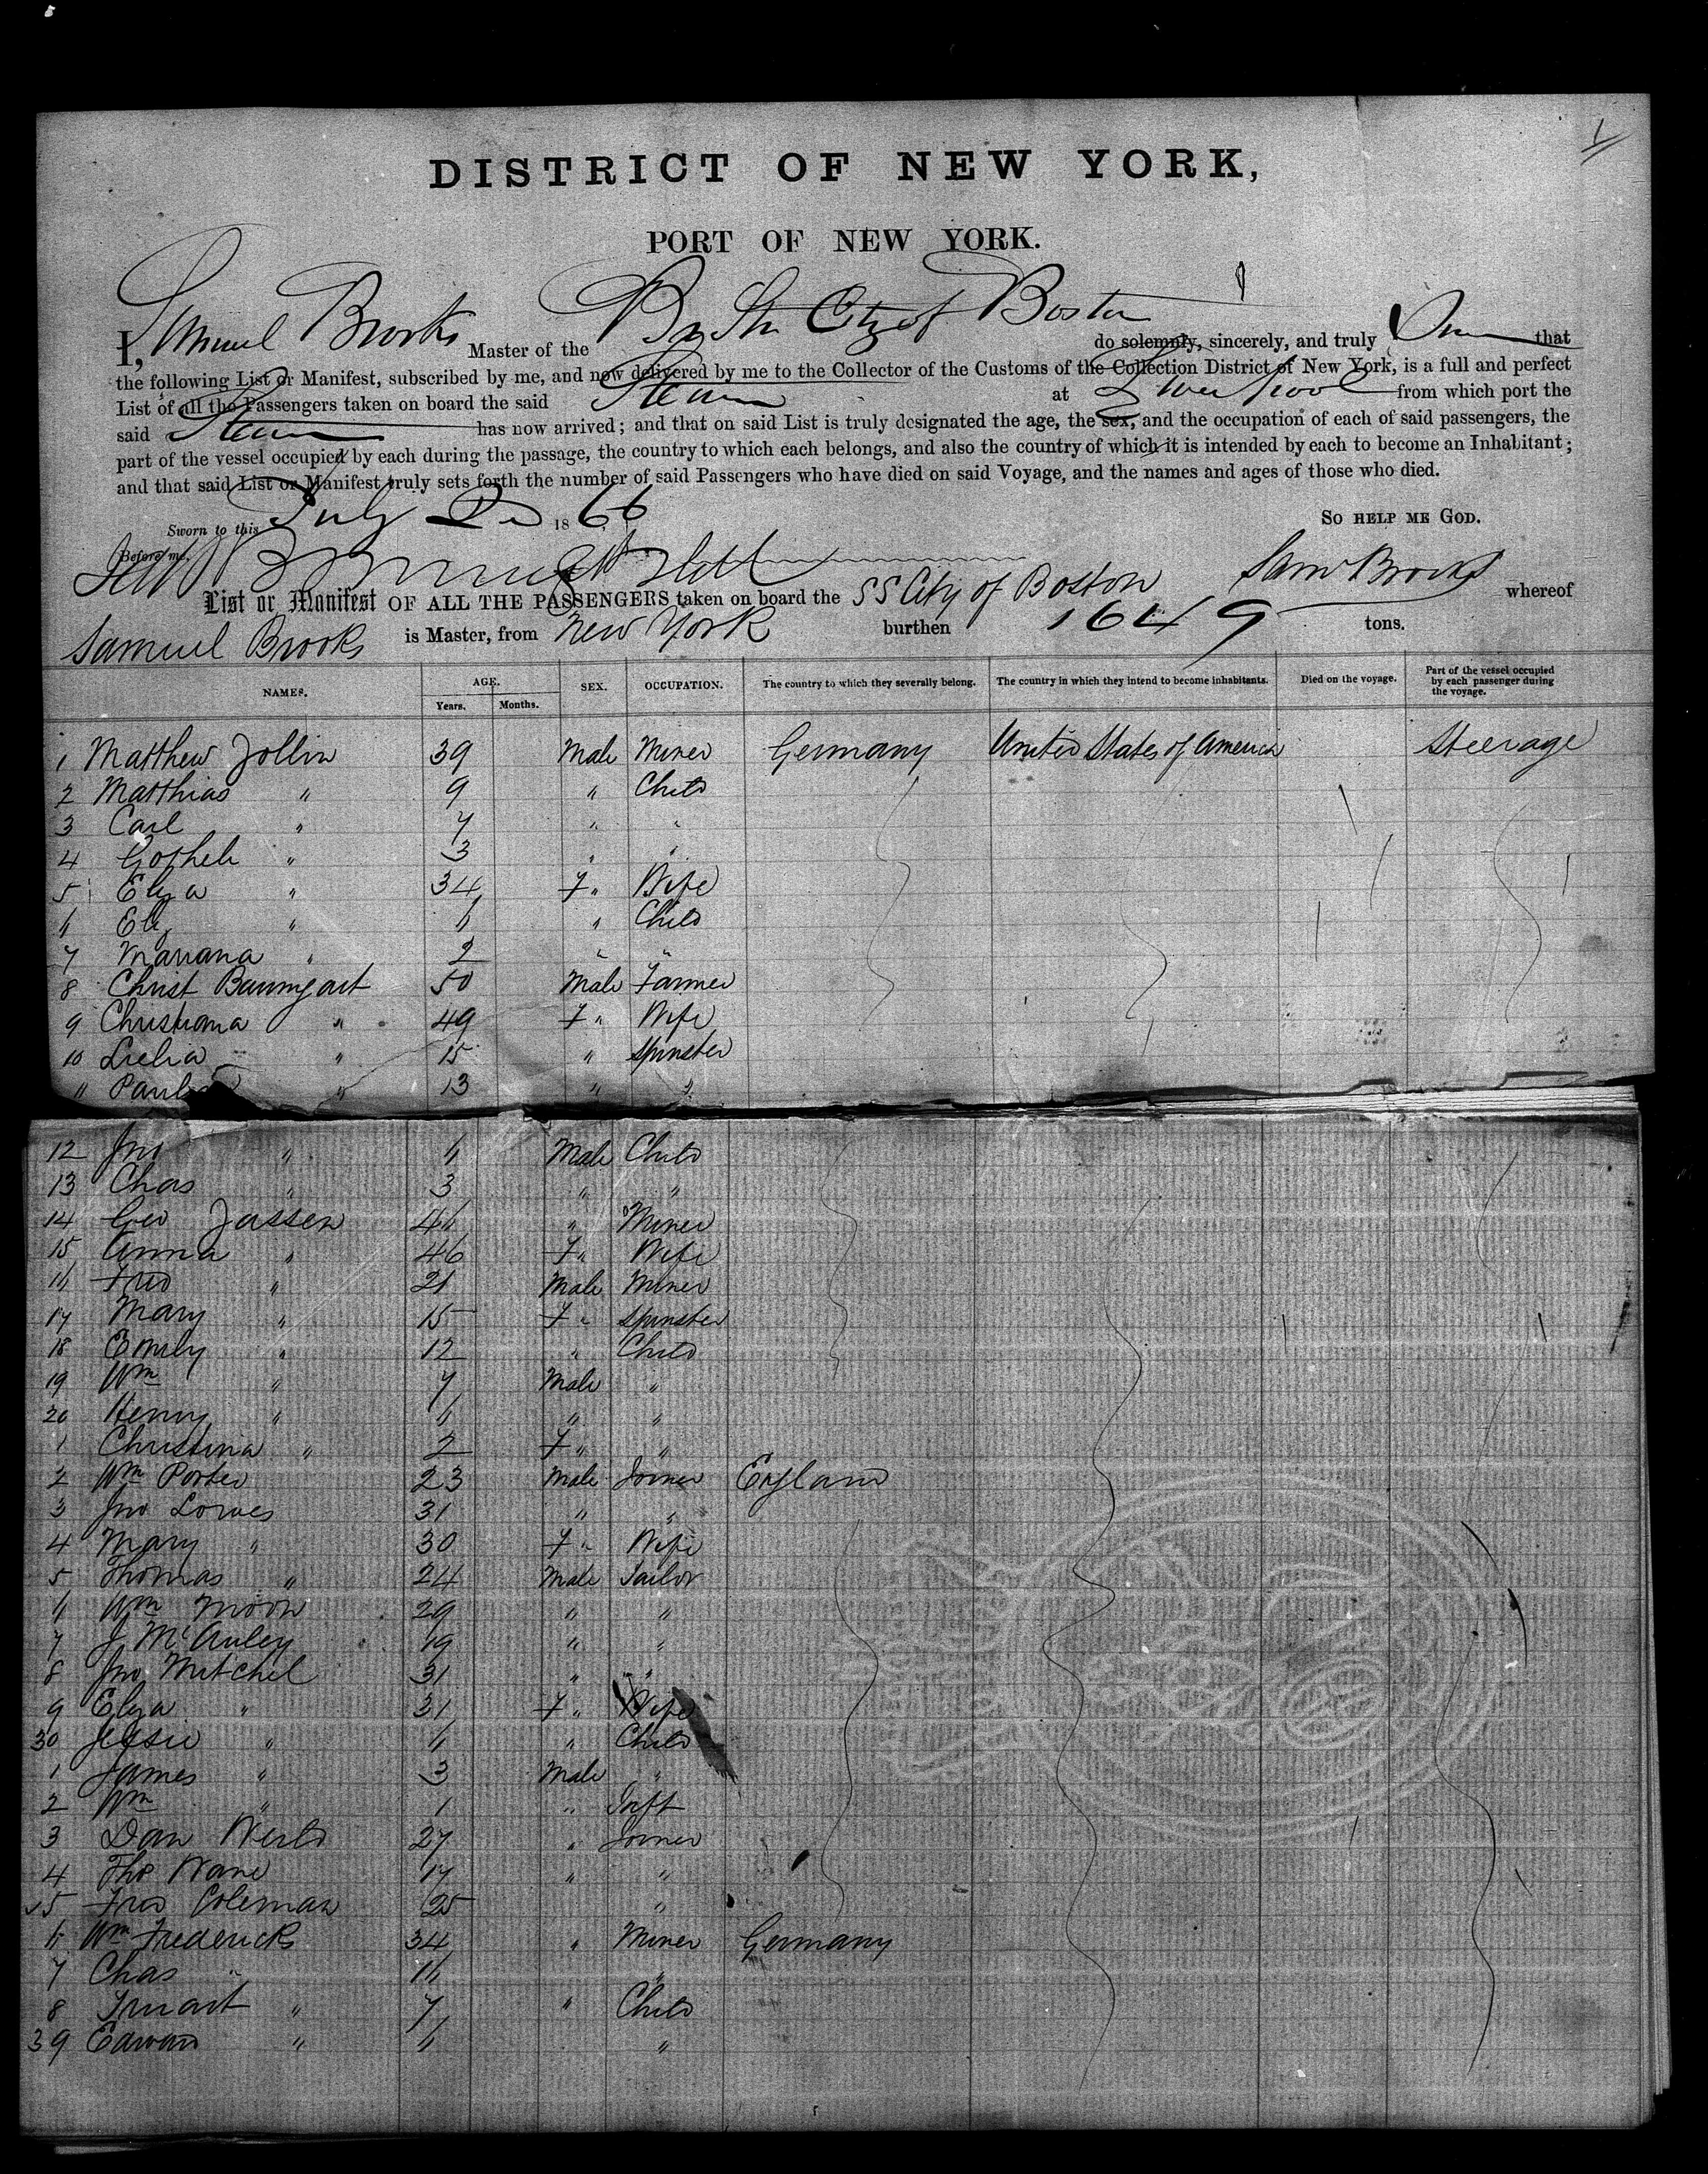 DISTRICT OF NEW YORK,
PORT OF NEW YORK.
I, Samuel Brooks Master of the Br Str City of Boston do solemnly, sincerely, and truly that
the following List or Manifest, subscribed by me, and now delivered by me to the Collector of the Customs of the Collection District of New York, is a full and perfect
List of all the Passengers taken on board the said Steam at Liverpool from which port the
said Steam has now arrived; and that on said List is truly designated the age, the sex, and the occupation of each of said passengers, the
part of the vessel occupied by each during the passage, the country to which each belongs, and also the country of which it is intended by each to become an Inhabitant;
and that said List or Manifest truly sets forth the number of said Passengers who have died on said Voyage, and the names and ages of those who died.
Sworn to this July 2 1866 So help me God.
Before me,
Saml Brooks
List or Manifest OF ALL THE PASSENGERS taken on board the SS City of Boston whereof
Samuel Brooks is Master, from New York burthen 1649 tons.
NAMES. AGE. Years. Months. SEX. OCCUPATION. The country to which they severally belong. The country in which they intend to become inhabitants. Died on the voyage. Part of the vessel occupied by each passenger during the voyage.
1 Matthew Jollin 39 Male Miner Germany United States of America Steerage
2 Matthias " 9 " Child
3 Carl " 7 " "
4 " 3 " "
5 Eliza " 34 F " Wife
6 " 6 " Child
7 Mariana " 2 " "
8 Christ Baumgart 50 Male Farmer
9 Christiana " 49 F " Wife
10 " 15 " Spinster
11 " 13 " "
12 Jno " 6 Male Child
13 Chas " 3 " "
14 Geo Jassen 46 " Miner
15 Anna " 46 F " Wife
16 Fred " 21 Male Miner
17 Mary " 15 F " Spinster
18 Emily " 12 " Child
19 Wm " 7 Male "
20 Henry " 6 " "
1 Christina " 2 F " "
2 Wm Porter 23 Male Joiner England
3 Jno Lowes 31 " "
4 Mary " 30 F " Wife
5 Thomas " 24 Male Tailor
6 Wm Moon 29 " "
7 J McAuley 19 " "
8 Jno Mitchel 31 " "
9 Eliza " 31 F " Wife
30 Jessie " 6 " Child
1 James " 3 Male "
2 Wm " 1 " Inft
3 Dan 27 " Joiner
4 Tho Wane 17 " "
35 Fred Coleman 25 "
6 Wm Fredericks 34 " Miner Germany
7 Chas " 16 "
8 " 7 " Child
39 Edward " 6 "